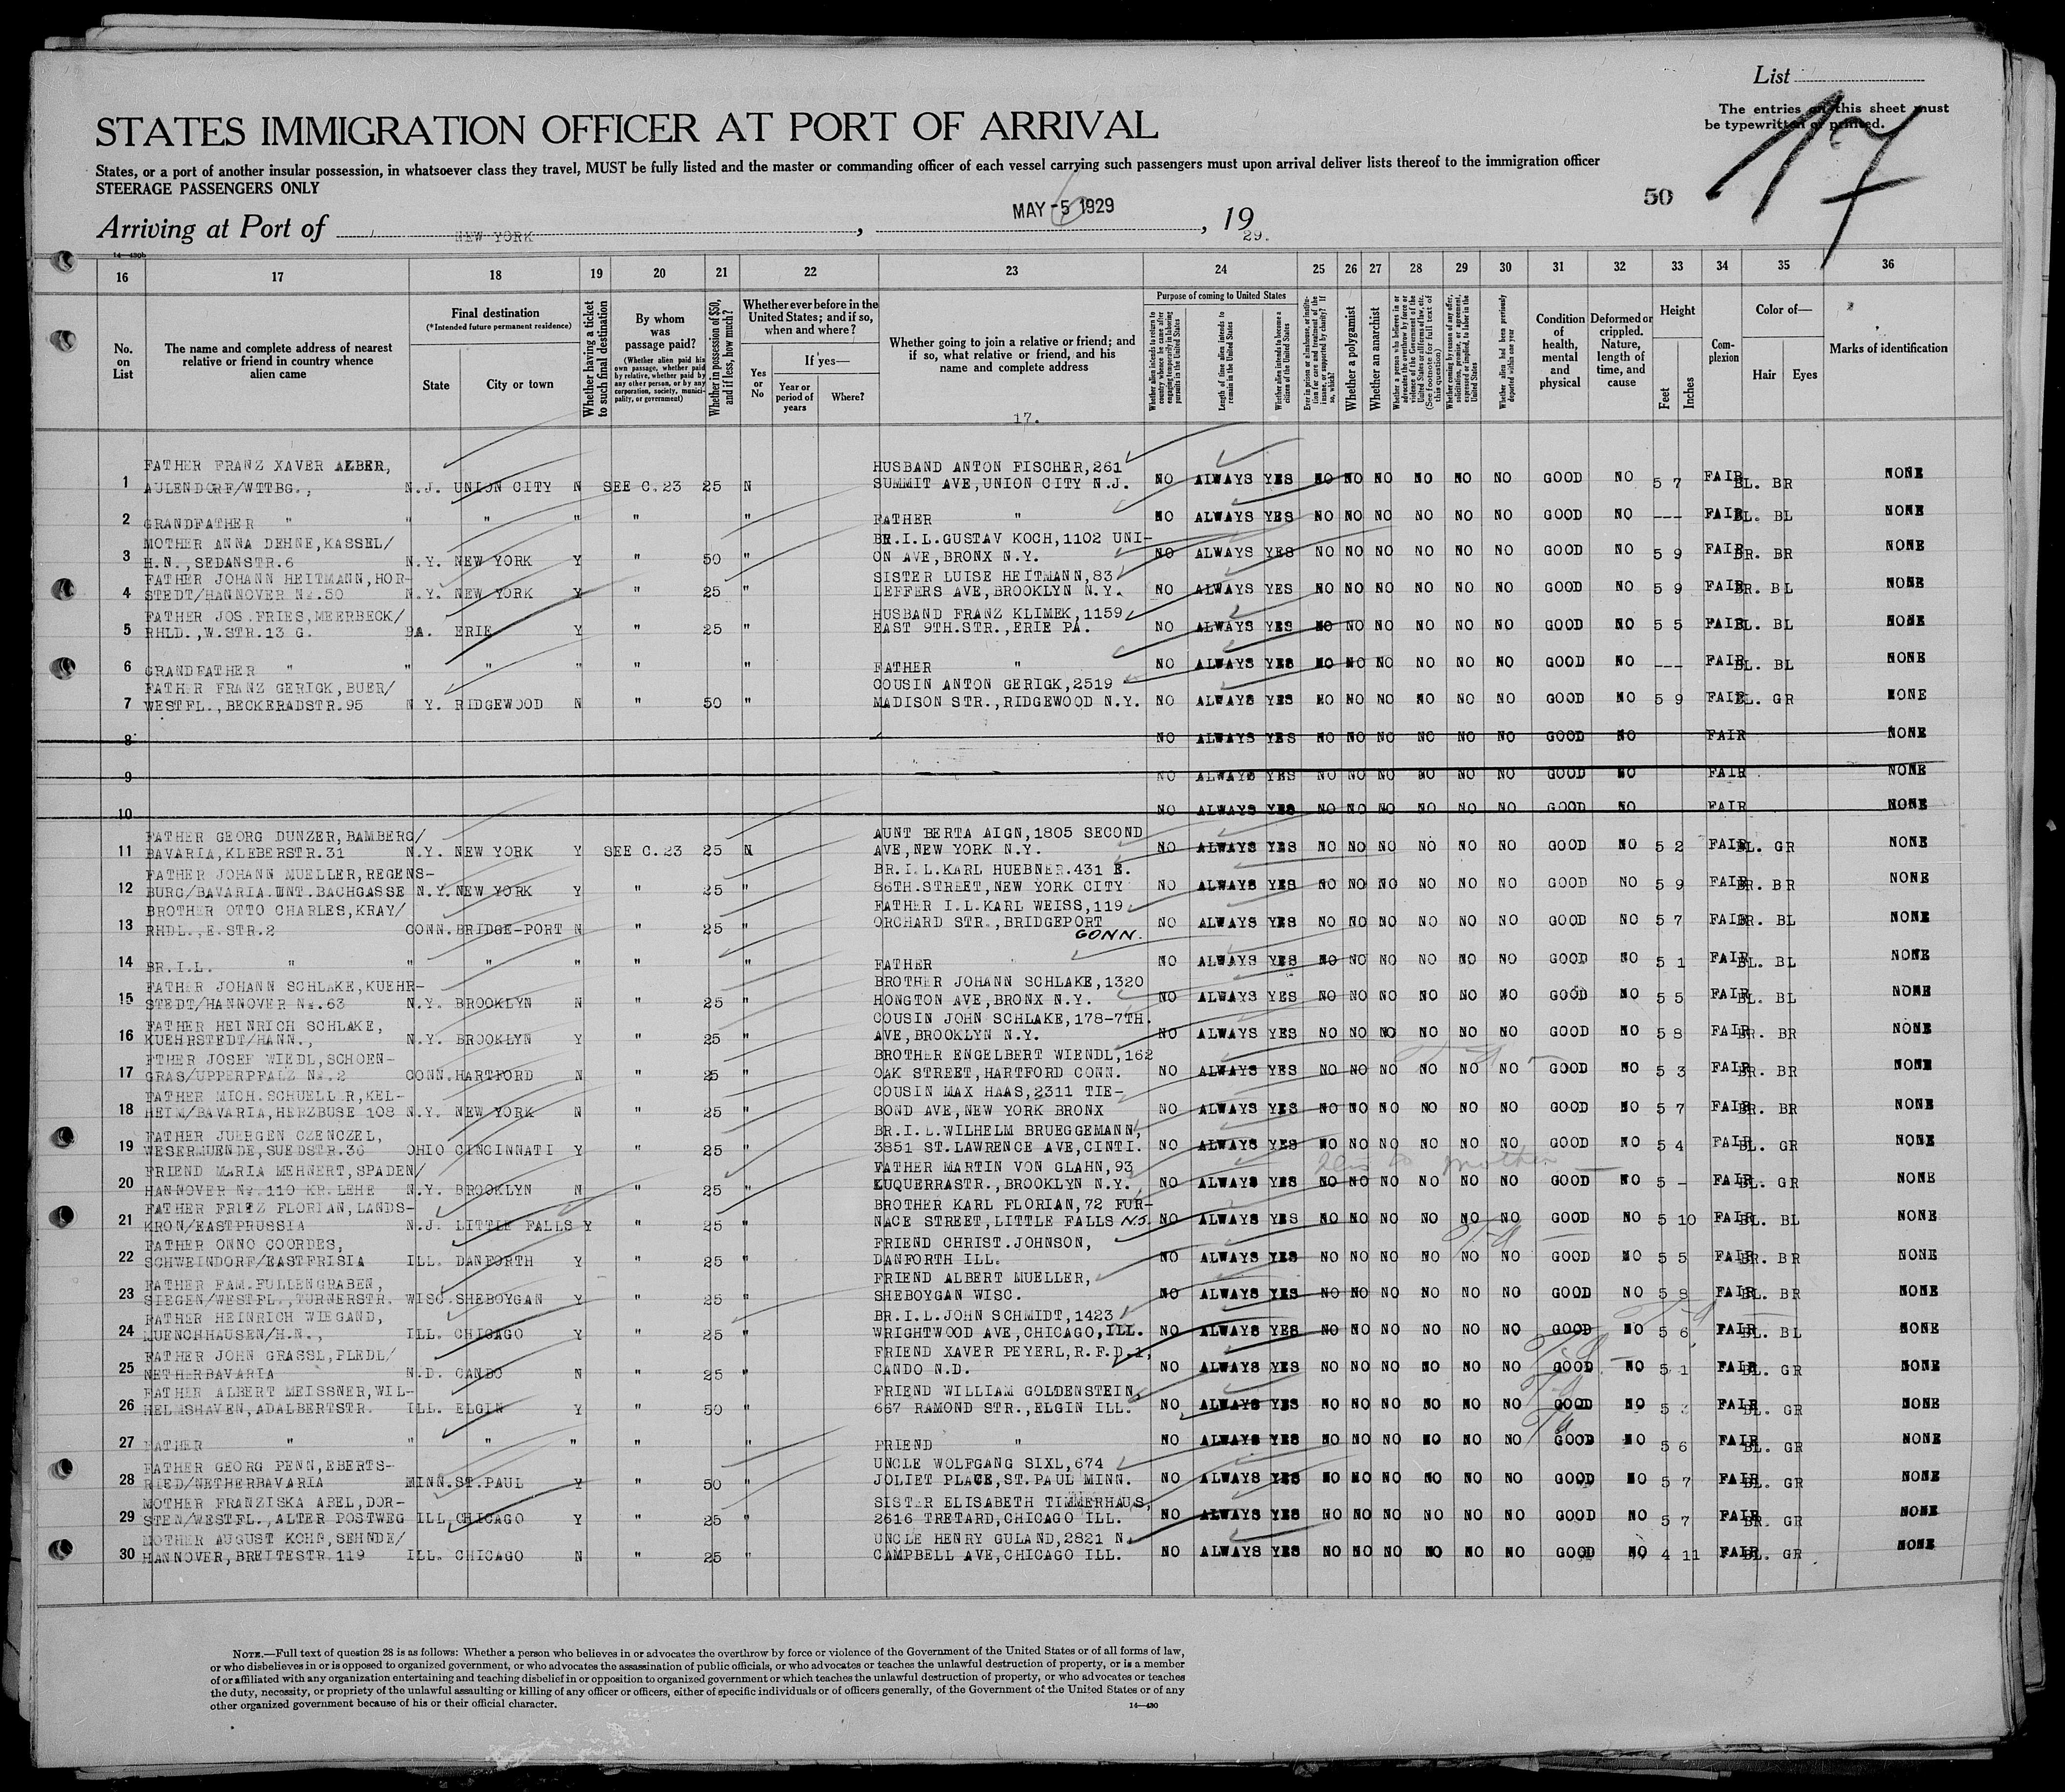 List
The entries on this sheet must
be typewritten or printed.
17
STATES IMMIGRATION OFFICER AT PORT OF ARRIVAL
States, or a port of another insular possession, in whatsoever class they travel, MUST be fully listed and the master or commanding officer of each vessel carrying such passengers must upon arrival deliver lists thereof to the immigration officer
STEERAGE PASSENGERS ONLY
50
Arriving at Port of NEW YORK, MAY -5 1929, 19 29.
14—430b
16 17 18 19 20 21 22 23 24 25 26 27 28 29 30 31 32 33 34 35 36
No. on List
The name and complete address of nearest relative or friend in country whence alien came
Final destination
(*Intended future permanent residence)
State
City or town
Whether having a ticket to such final destination
By whom was passage paid?
(Whether alien paid his own passage, whether paid by relative, whether paid by any other person, or by any corporation, society, municipality, or government)
Whether in possession of $50, and if less, how much?
Whether ever before in the United States; and if so, when and where?
Yes or No
If yes—
Year or period of years
Where?
Whether going to join a relative or friend; and if so, what relative or friend, and his name and complete address
17.
Purpose of coming to United States
Whether alien intends to return to country whence he came after engaging temporarily in laboring pursuits in the United States
Length of time alien intends to remain in the United States
Whether alien intends to become a citizen of the United States
Ever in prison or almshouse, or institution for care and treatment of the insane, or supported by charity? If so, which?
Whether a polygamist
Whether an anarchist
Whether a person who believes in or advocates the overthrow by force or violence of the Government of the United States or all forms of law, etc. (See footnote for full text of this question)
Whether coming by reason of any offer, solicitation, promise, or agreement, expressed or implied, to labor in the United States
Whether alien had been previously deported within one year
Condition of health, mental and physical
Deformed or crippled. Nature, length of time, and cause
Height
Feet
Inches
Complexion
Color of—
Hair
Eyes
Marks of identification
FATHER FRANZ XAVER ALBER, HUSBAND ANTON FISCHER,261
1 AULENDORF/WTTBG., N.J. UNION CITY N SEE C.23 25 N SUMMIT AVE,UNION CITY N.J. NO ALWAYS YES NO NO NO NO NO NO GOOD NO 5 7 FAIR BL. BR NONE
2 GRANDFATHER " " " " " " FATHER " NO ALWAYS YES NO NO NO NO NO NO GOOD NO --- FAIR BL. BL NONE
MOTHER ANNA DEHNE,KASSEL/ BR.I.L.GUSTAV KOCH,1102 UNI-
3 H.N.,SEDANSTR.6 N.Y. NEW YORK Y " 50 " ON AVE,BRONX N.Y. NO ALWAYS YES NO NO NO NO NO NO GOOD NO 5 9 FAIR BR. BR NONE
FATHER JOHANN HEITMANN,HOR- SISTER LUISE HEITMANN,83
4 STEDT/HANNOVER No.50 N.Y. NEW YORK Y " 25 " LEFFERS AVE,BROOKLYN N.Y. NO ALWAYS YES NO NO NO NO NO NO GOOD NO 5 9 FAIR BR. BL NONE
FATHER JOS.FRIES,MEERBECK/ HUSBAND FRANZ KLIMEK,1159
5 RHLD.,W.STR.13 G. PA. ERIE Y " 25 " EAST 9TH.STR.,ERIE PA. NO ALWAYS YES NO NO NO NO NO NO GOOD NO 5 5 FAIR BL. BL NONE
6 GRANDFATHER " " " " " " FATHER " NO ALWAYS YES NO NO NO NO NO NO GOOD NO --- FAIR BL. BL NONE
FATHER FRANZ GERIGK,BUER/ COUSIN ANTON GERIGK,2519
7 WESTFL.,BECKERADSTR.95 N Y. RIDGEWOOD N " 50 " MADISON STR.,RIDGEWOOD N.Y. NO ALWAYS YES NO NO NO NO NO NO GOOD NO 5 9 FAIR BL. GR NONE
8 NO ALWAYS YES NO NO NO NO NO NO GOOD NO FAIR NONE
9 NO ALWAYS YES NO NO NO NO NO NO GOOD NO FAIR NONE
10 NO ALWAYS YES NO NO NO NO NO NO GOOD NO FAIR NONE
FATHER GEORG DUNZER,BAMBERG/ AUNT BERTA AIGN,1805 SECOND
11 BAVARIA,KLEBERSTR.31 N.Y. NEW YORK Y SEE C.23 25 N AVE,NEW YORK N.Y. NO ALWAYS YES NO NO NO NO NO NO GOOD NO 5 2 FAIR BL. GR NONE
FATHER JOHANN MUELLER,REGENS- BR.I.L.KARL HUEBNER.431 E.
12 BURG/BAVARIA.UNT.BACHGASSE N.Y. NEW YORK Y " 25 " 86TH.STREET,NEW YORK CITY NO ALWAYS YES NO NO NO NO NO NO GOOD NO 5 9 FAIR BR. BR NONE
BROTHER OTTO CHARLES,KRAY/ FATHER I.L.KARL WEISS,119
13 RHDL.,E.STR.2 CONN. BRIDGE-PORT N " 25 " ORCHARD STR.,BRIDGEPORT CONN. NO ALWAYS YES NO NO NO NO NO NO GOOD NO 5 7 FAIR BR. BL NONE
14 BR.I.L. " " " " " " FATHER NO ALWAYS YES NO NO NO NO NO NO GOOD NO 5 1 FAIR BL. BL NONE
FATHER JOHANN SCHLAKE,KUEHR- BROTHER JOHANN SCHLAKE,1320
15 STEDT/HANNOVER No.63 N.Y. BROOKLYN N " 25 " HONGTON AVE,BRONX N.Y. NO ALWAYS YES NO NO NO NO NO NO GOOD NO 5 5 FAIR BL. BL NONE
FATHER HEINRICH SCHLAKE, COUSIN JOHN SCHLAKE,178-7TH.
16 KUEHRSTEDT/HANN., N.Y. BROOKLYN Y " 25 " AVE,BROOKLYN N.Y. NO ALWAYS YES NO NO NO NO NO NO GOOD NO 5 8 FAIR BR. BR NONE
FTHER JOSEF WIEDL,SCHOEN- BROTHER ENGELBERT WIENDL,162
17 GRAS/UPPERPFALZ No.2 CONN. HARTFORD N " 25 " OAK STREET,HARTFORD CONN. NO ALWAYS YES NO NO NO NO NO NO GOOD NO 5 3 FAIR BR. BR NONE
FATHER MICH.SCHUELLER,KEL- COUSIN MAX HAAS,2311 TIE-
18 HEIM/BAVARIA,HERZBUSE 108 N.Y. NEW YORK N " 25 " BOND AVE,NEW YORK BRONX NO ALWAYS YES NO NO NO NO NO NO GOOD NO 5 7 FAIR BR. BR NONE
FATHER JUERGEN CZENCZEL, BR.I.L.WILHELM BRUEGGEMANN,
19 WESERMUENDE,SUEDSTR.36 OHIO CINCINNATI Y " 25 " 3851 ST.LAWRENCE AVE,CINTI. NO ALWAYS YES NO NO NO NO NO NO GOOD NO 5 4 FAIR BL. GR NONE
FRIEND MARIA MEHNERT,SPADEN/ FATHER MARTIN VON GLAHN,93 mother
20 HANNOVER No.110 KR.LEHE N.Y. BROOKLYN N " 25 " LUQUERRASTR.,BROOKLYN N.Y. NO ALWAYS YES NO NO NO NO NO NO GOOD NO 5 - FAIR BL. GR NONE
FATHER FRITZ FLORIAN,LANDS- BROTHER KARL FLORIAN,72 FUR-
21 KRON/EASTPRUSSIA N.J. LITTLE FALLS Y " 25 " NACE STREET,LITTLE FALLS N.J. NO ALWAYS YES NO NO NO NO NO NO GOOD NO 5 10 FAIR BL. BL NONE
FATHER ONNO COORDES, FRIEND CHRIST.JOHNSON,
22 SCHWEINDORF/EASTFRISIA ILL. DANFORTH Y " 25 " DANFORTH ILL. NO ALWAYS YES NO NO NO NO NO NO GOOD NO 5 5 FAIR BR. BR NONE
FATHER FAM.FULLENGRABEN, FRIEND ALBERT MUELLER,
23 SIEGEN/WESTFL.,TURNERSTR. WISC. SHEBOYGAN Y " 25 " SHEBOYGAN WISC. NO ALWAYS YES NO NO NO NO NO NO GOOD NO 5 8 FAIR BL. BR NONE
FATHER HEINRICH WIEGAND, BR.I.L.JOHN SCHMIDT,1423
24 MUENCHHAUSEN/H.N., ILL. CHICAGO Y " 25 " WRIGHTWOOD AVE,CHICAGO,ILL. NO ALWAYS YES NO NO NO NO NO NO GOOD NO 5 6 FAIR BL. BL NONE
FATHER JOHN GRASSL,PLEDL/ FRIEND XAVER PEYERL,R.F.D.1,
25 NETHERBAVARIA N.D. CANDO N " 25 " CANDO N.D. NO ALWAYS YES NO NO NO NO NO NO GOOD NO 5 1 FAIR BL. GR NONE
FATHER ALBERT MEISSNER,WIL- FRIEND WILLIAM GOLDENSTEIN,
26 HELMSHAVEN,ADALBERTSTR. ILL. ELGIN Y " 50 " 667 RAMOND STR.,ELGIN ILL. NO ALWAYS YES NO NO NO NO NO NO GOOD NO 5 FAIR BL. GR NONE
27 FATHER " " " " " " FRIEND " NO ALWAYS YES NO NO NO NO NO NO GOOD NO 5 6 FAIR BL. GR NONE
FATHER GEORG PENN,EBERTS- UNCLE WOLFGANG SIXL,674
28 RIED/NETHERBAVARIA MINN. ST.PAUL Y " 50 " JOLIET PLACE,ST.PAUL MINN. NO ALWAYS YES NO NO NO NO NO NO GOOD NO 5 7 FAIR BL. GR NONE
MOTHER FRANZISKA ABEL,DOR- SISTER ELISABETH TIMMERHAUS,
29 STEN/WESTFL.,ALTER POSTWEG ILL. CHICAGO Y " 25 " 2616 TRETARD,CHICAGO ILL. NO ALWAYS YES NO NO NO NO NO NO GOOD NO 5 7 FAIR BR. GR NONE
MOTHER AUGUST KOHN,SEHNDE/ UNCLE HENRY GULAND,2821 N.
30 HANNOVER,BREITESTR.119 ILL. CHICAGO N " 25 " CAMPBELL AVE,CHICAGO ILL. NO ALWAYS YES NO NO NO NO NO NO GOOD NO 4 11 FAIR BL. GR NONE
NOTE.—Full text of question 28 is as follows: Whether a person who believes in or advocates the overthrow by force or violence of the Government of the United States or of all forms of law,
or who disbelieves in or is opposed to organized government, or who advocates the assassination of public officials, or who advocates or teaches the unlawful destruction of property, or is a member
of or affiliated with any organization entertaining and teaching disbelief in or opposition to organized government or which teaches the unlawful destruction of property, or who advocates or teaches
the duty, necessity, or propriety of the unlawful assaulting or killing of any officer or officers, either of specific individuals or of officers generally, of the Government of the United States or of any
other organized government because of his or their official character.
14—430